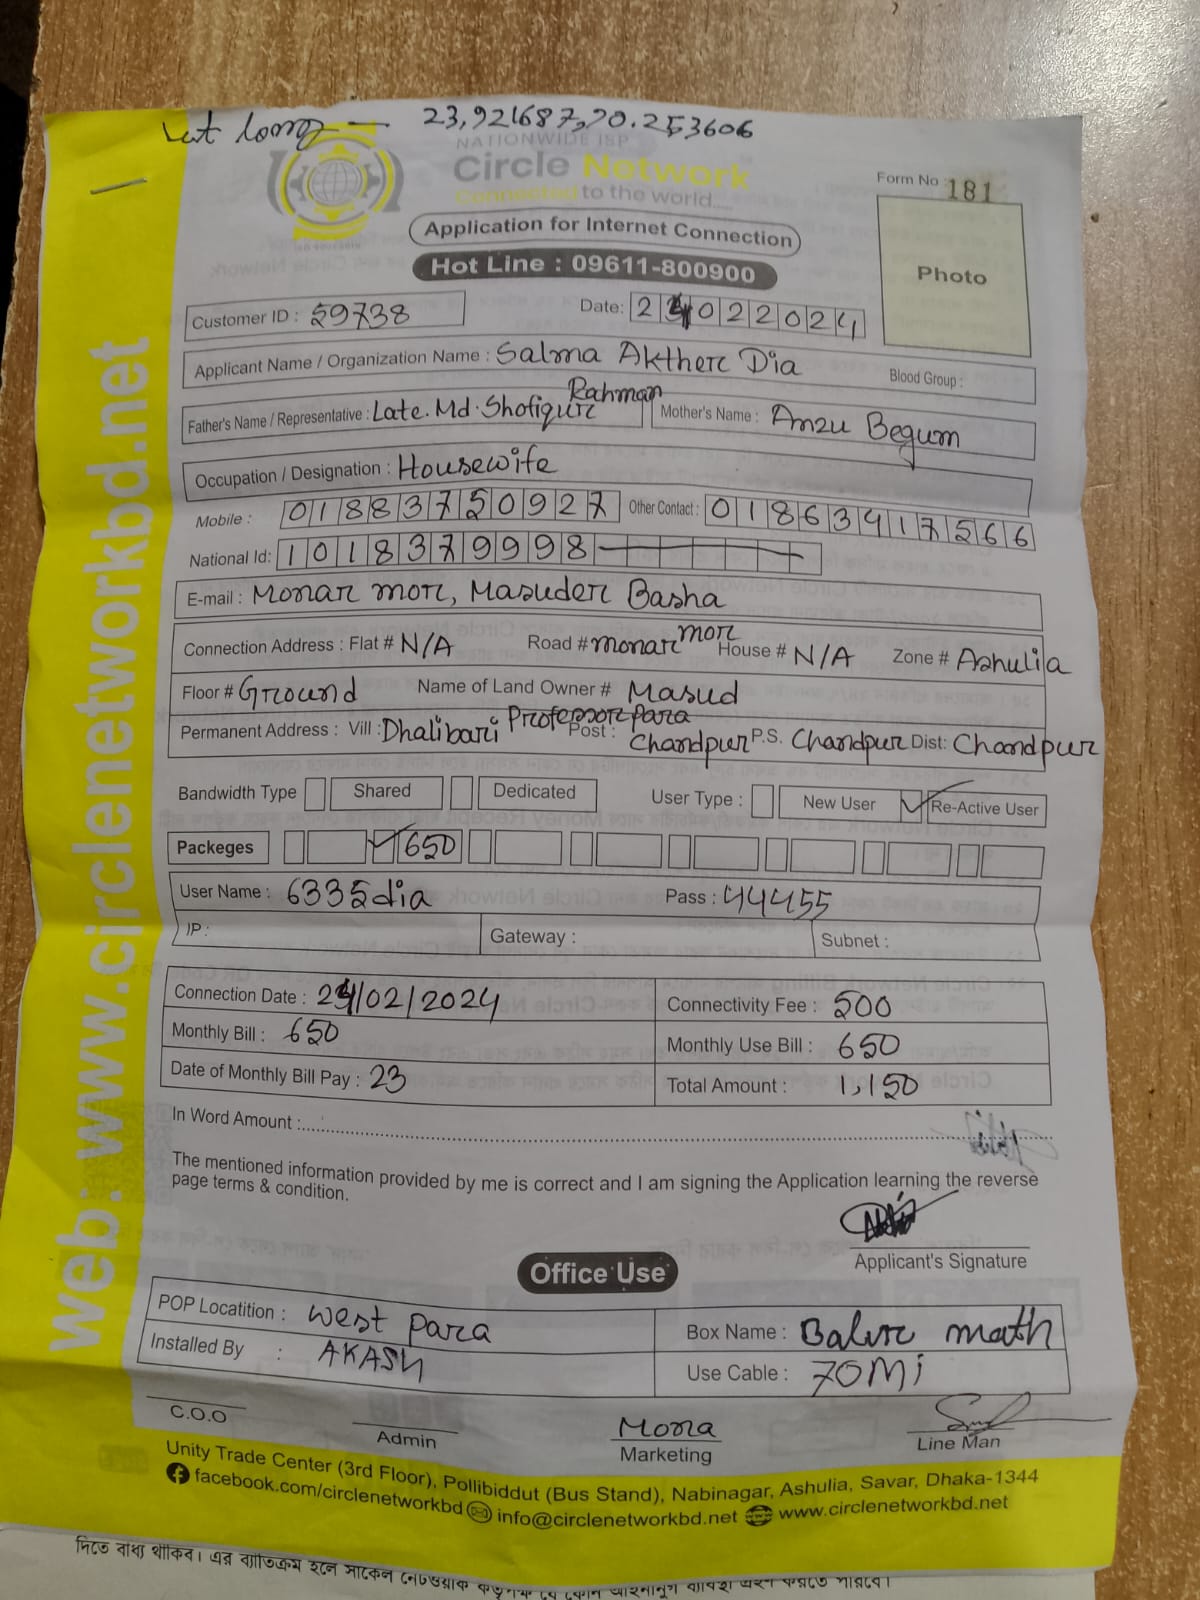 Lat long — 23,921687,90.253606
NATIONWIDE ISP
Circle Network
Connected to the world....
Form No : 181
Application for Internet Connection
Hot Line : 09611-800900
Photo
Customer ID : 59738
Date: 2 022024
Applicant Name / Organization Name : Salma Akther Dia
Blood Group :
Father's Name / Representative : Late. Md. Shofiqur Rahman
Mother's Name : Anzu Begum
Occupation / Designation : Housewife
Mobile : 01883750927
Other Contact : 01863417566
National Id: 1018379998
E-mail : Monar mor, Masuder Basha
Connection Address : Flat # N/A Road # monar mor House # N/A Zone # Ashulia
Floor # Ground Name of Land Owner # Masud
Permanent Address : Vill : Dhalibari Professor para Post : Chandpur P.S. Chandpur Dist: Chandpur
Bandwidth Type Shared Dedicated User Type : New User Re-Active User
Packeges 650
User Name : 6335dia Pass : 44455
IP : Gateway : Subnet :
Connection Date : 24/02/2024 Connectivity Fee : 500
Monthly Bill : 650 Monthly Use Bill : 650
Date of Monthly Bill Pay : 23 Total Amount : 1,150
In Word Amount :
The mentioned information provided by me is correct and I am signing the Application learning the reverse
page terms & condition.
Applicant's Signature
Office Use
POP Locatition : West para
Box Name : Balur math
Installed By : AKASH
Use Cable : 70Mi
C.O.O
Admin
Mona
Marketing
Line Man
Unity Trade Center (3rd Floor), Pollibiddut (Bus Stand), Nabinagar, Ashulia, Savar, Dhaka-1344
facebook.com/circlenetworkbd info@circlenetworkbd.net www.circlenetworkbd.net
web: www.circlenetworkbd.net
দিতে বাধ্য থাকিব। এর ব্যতিক্রম হলে সার্কেল নেটওয়ার্ক